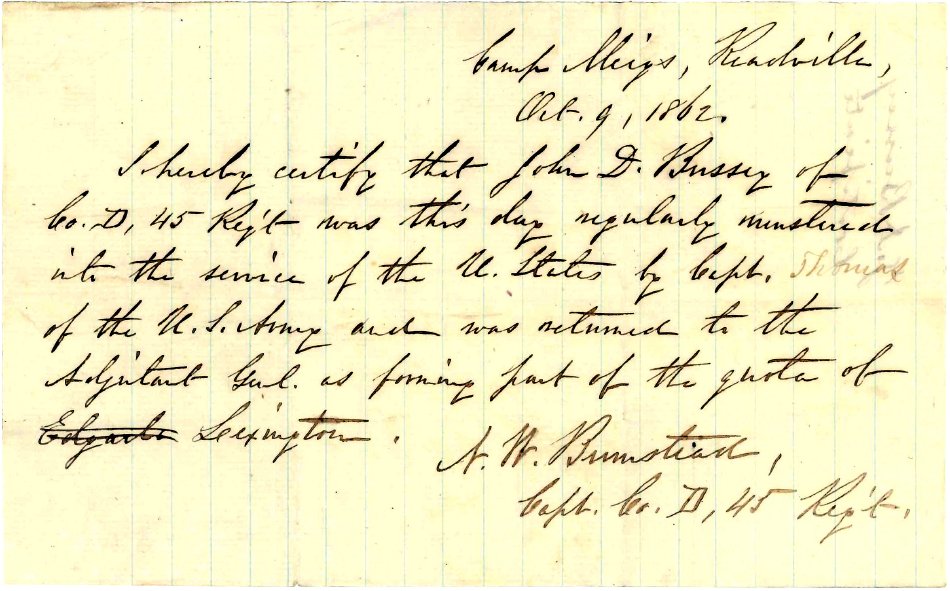 Camp Meigs, Readville,
Oct. 9, 1862.
I hereby certify that John D. Bussey of
Co. D, 45 Reg't was this day regularly mustered
into the service of the U. States by Capt. Thomas
of the U. S. Army and was returned to the
Adjutant Genl. as forming part of the quota of
Lexington.
N. W. Bumstead,
Capt. Co. D, 45 Reg't.